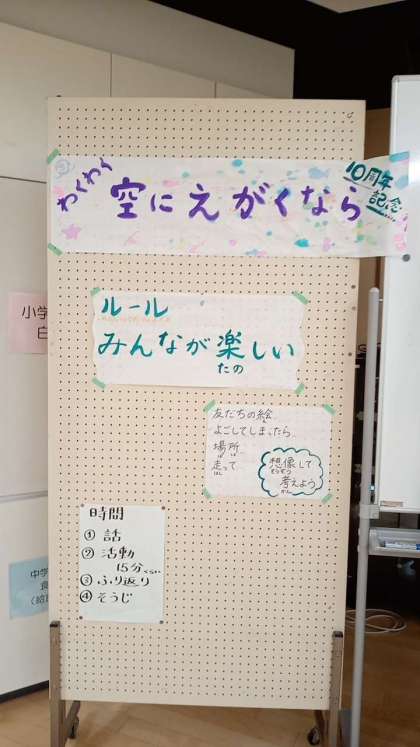 わくわく
空にえがくなら
10周年
記念
ルール
みんなが楽しい
たの
友だちの絵
よごしてしまったら
場所
走って
想像して
そうぞう
考えよう
かんが
時間
① 話
② 活動
15分くらい
③ ふり返り
④ そうじ
小学
白
中学
食
(給